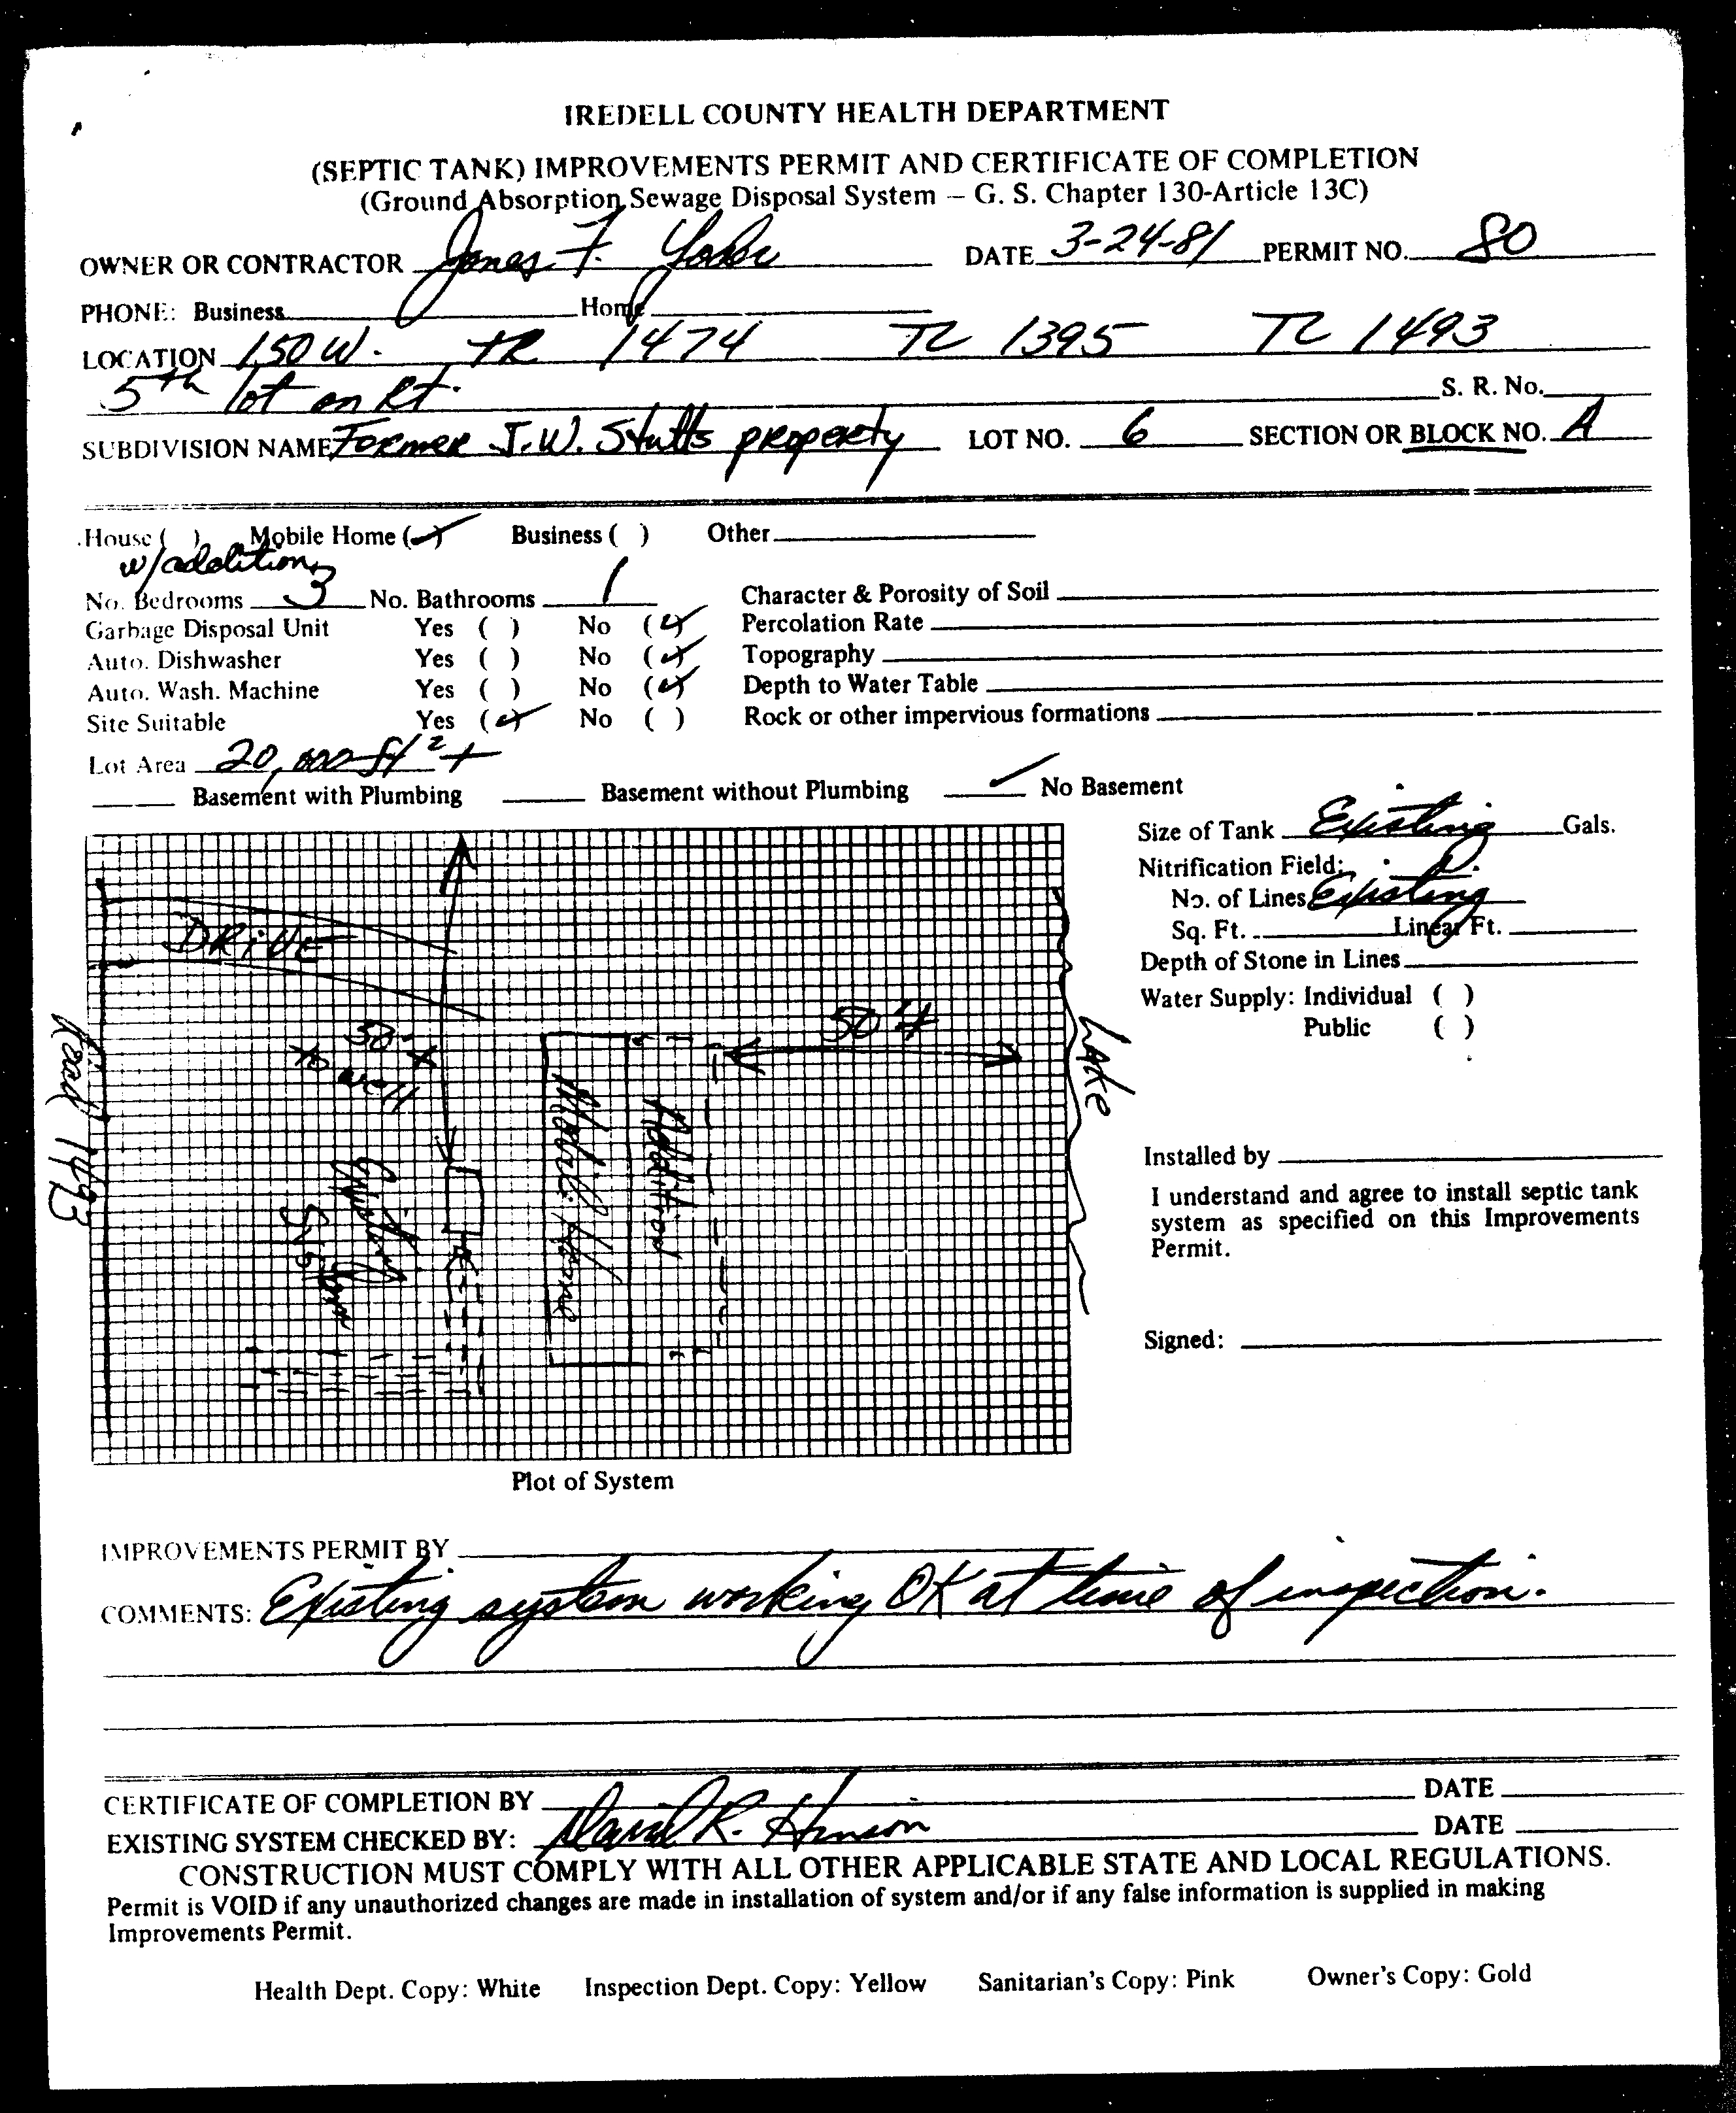 IREDELL COUNTY HEALTH DEPARTMENT
(SEPTIC TANK) IMPROVEMENTS PERMIT AND CERTIFICATE OF COMPLETION
(Ground Absorption Sewage Disposal System — G. S. Chapter 130-Article 13C)
OWNER OR CONTRACTOR James F. DATE 3-24-81 PERMIT NO. 80
PHONE: Business Home
LOCATION 150 W. TR 1474 TL 1395 TL 1493
5th lot on Rt. S. R. No.
SUBDIVISION NAME Former J.W. Stutts property LOT NO. 6 SECTION OR BLOCK NO. A
House ( ) Mobile Home (✓) Business ( ) Other
w/addition
No. Bedrooms 3 No. Bathrooms 1 Character & Porosity of Soil
Garbage Disposal Unit Yes ( ) No (✓) Percolation Rate
Auto. Dishwasher Yes ( ) No (✓) Topography
Auto. Wash. Machine Yes ( ) No (✓) Depth to Water Table
Site Suitable Yes (✓) No ( ) Rock or other impervious formations
Lot Area 20,000 ft² +
Basement with Plumbing Basement without Plumbing ✓ No Basement
Size of Tank Existing Gals.
Nitrification Field:
No. of Lines Existing
Sq. Ft. Linear Ft.
Depth of Stone in Lines
Water Supply: Individual ( )
Public ( )
DRIVE
50' +
to well
50' +
Lake
Road 1493
Mobile Home
Addition
Existing
System
Installed by
I understand and agree to install septic tank
system as specified on this Improvements
Permit.
Signed:
Plot of System
IMPROVEMENTS PERMIT BY
COMMENTS: Existing system working OK at time of inspection.
CERTIFICATE OF COMPLETION BY DATE
EXISTING SYSTEM CHECKED BY: David R. DATE
CONSTRUCTION MUST COMPLY WITH ALL OTHER APPLICABLE STATE AND LOCAL REGULATIONS.
Permit is VOID if any unauthorized changes are made in installation of system and/or if any false information is supplied in making
Improvements Permit.
Health Dept. Copy: White Inspection Dept. Copy: Yellow Sanitarian's Copy: Pink Owner's Copy: Gold